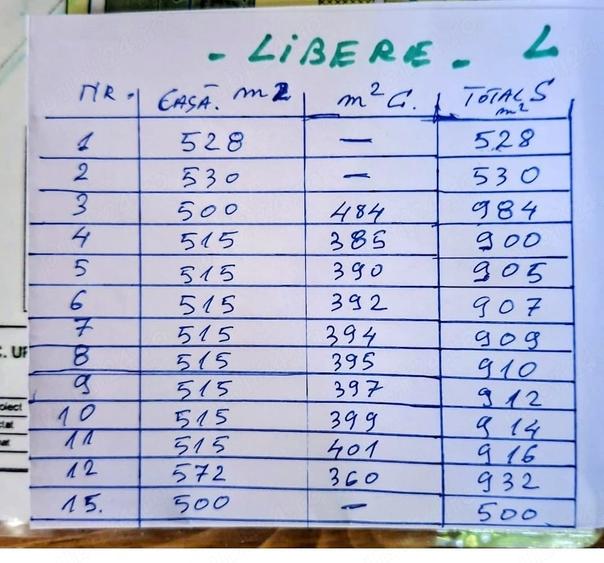 - LIBERE - L
NR. CASĂ. m2 m² G. TOTAL S m²
1 528 — 528
2 530 — 530
3 500 484 984
4 515 385 900
5 515 390 905
6 515 392 907
7 515 394 909
8 515 395 910
9 515 397 912
10 515 399 914
11 515 401 916
12 572 360 932
15. 500 — 500